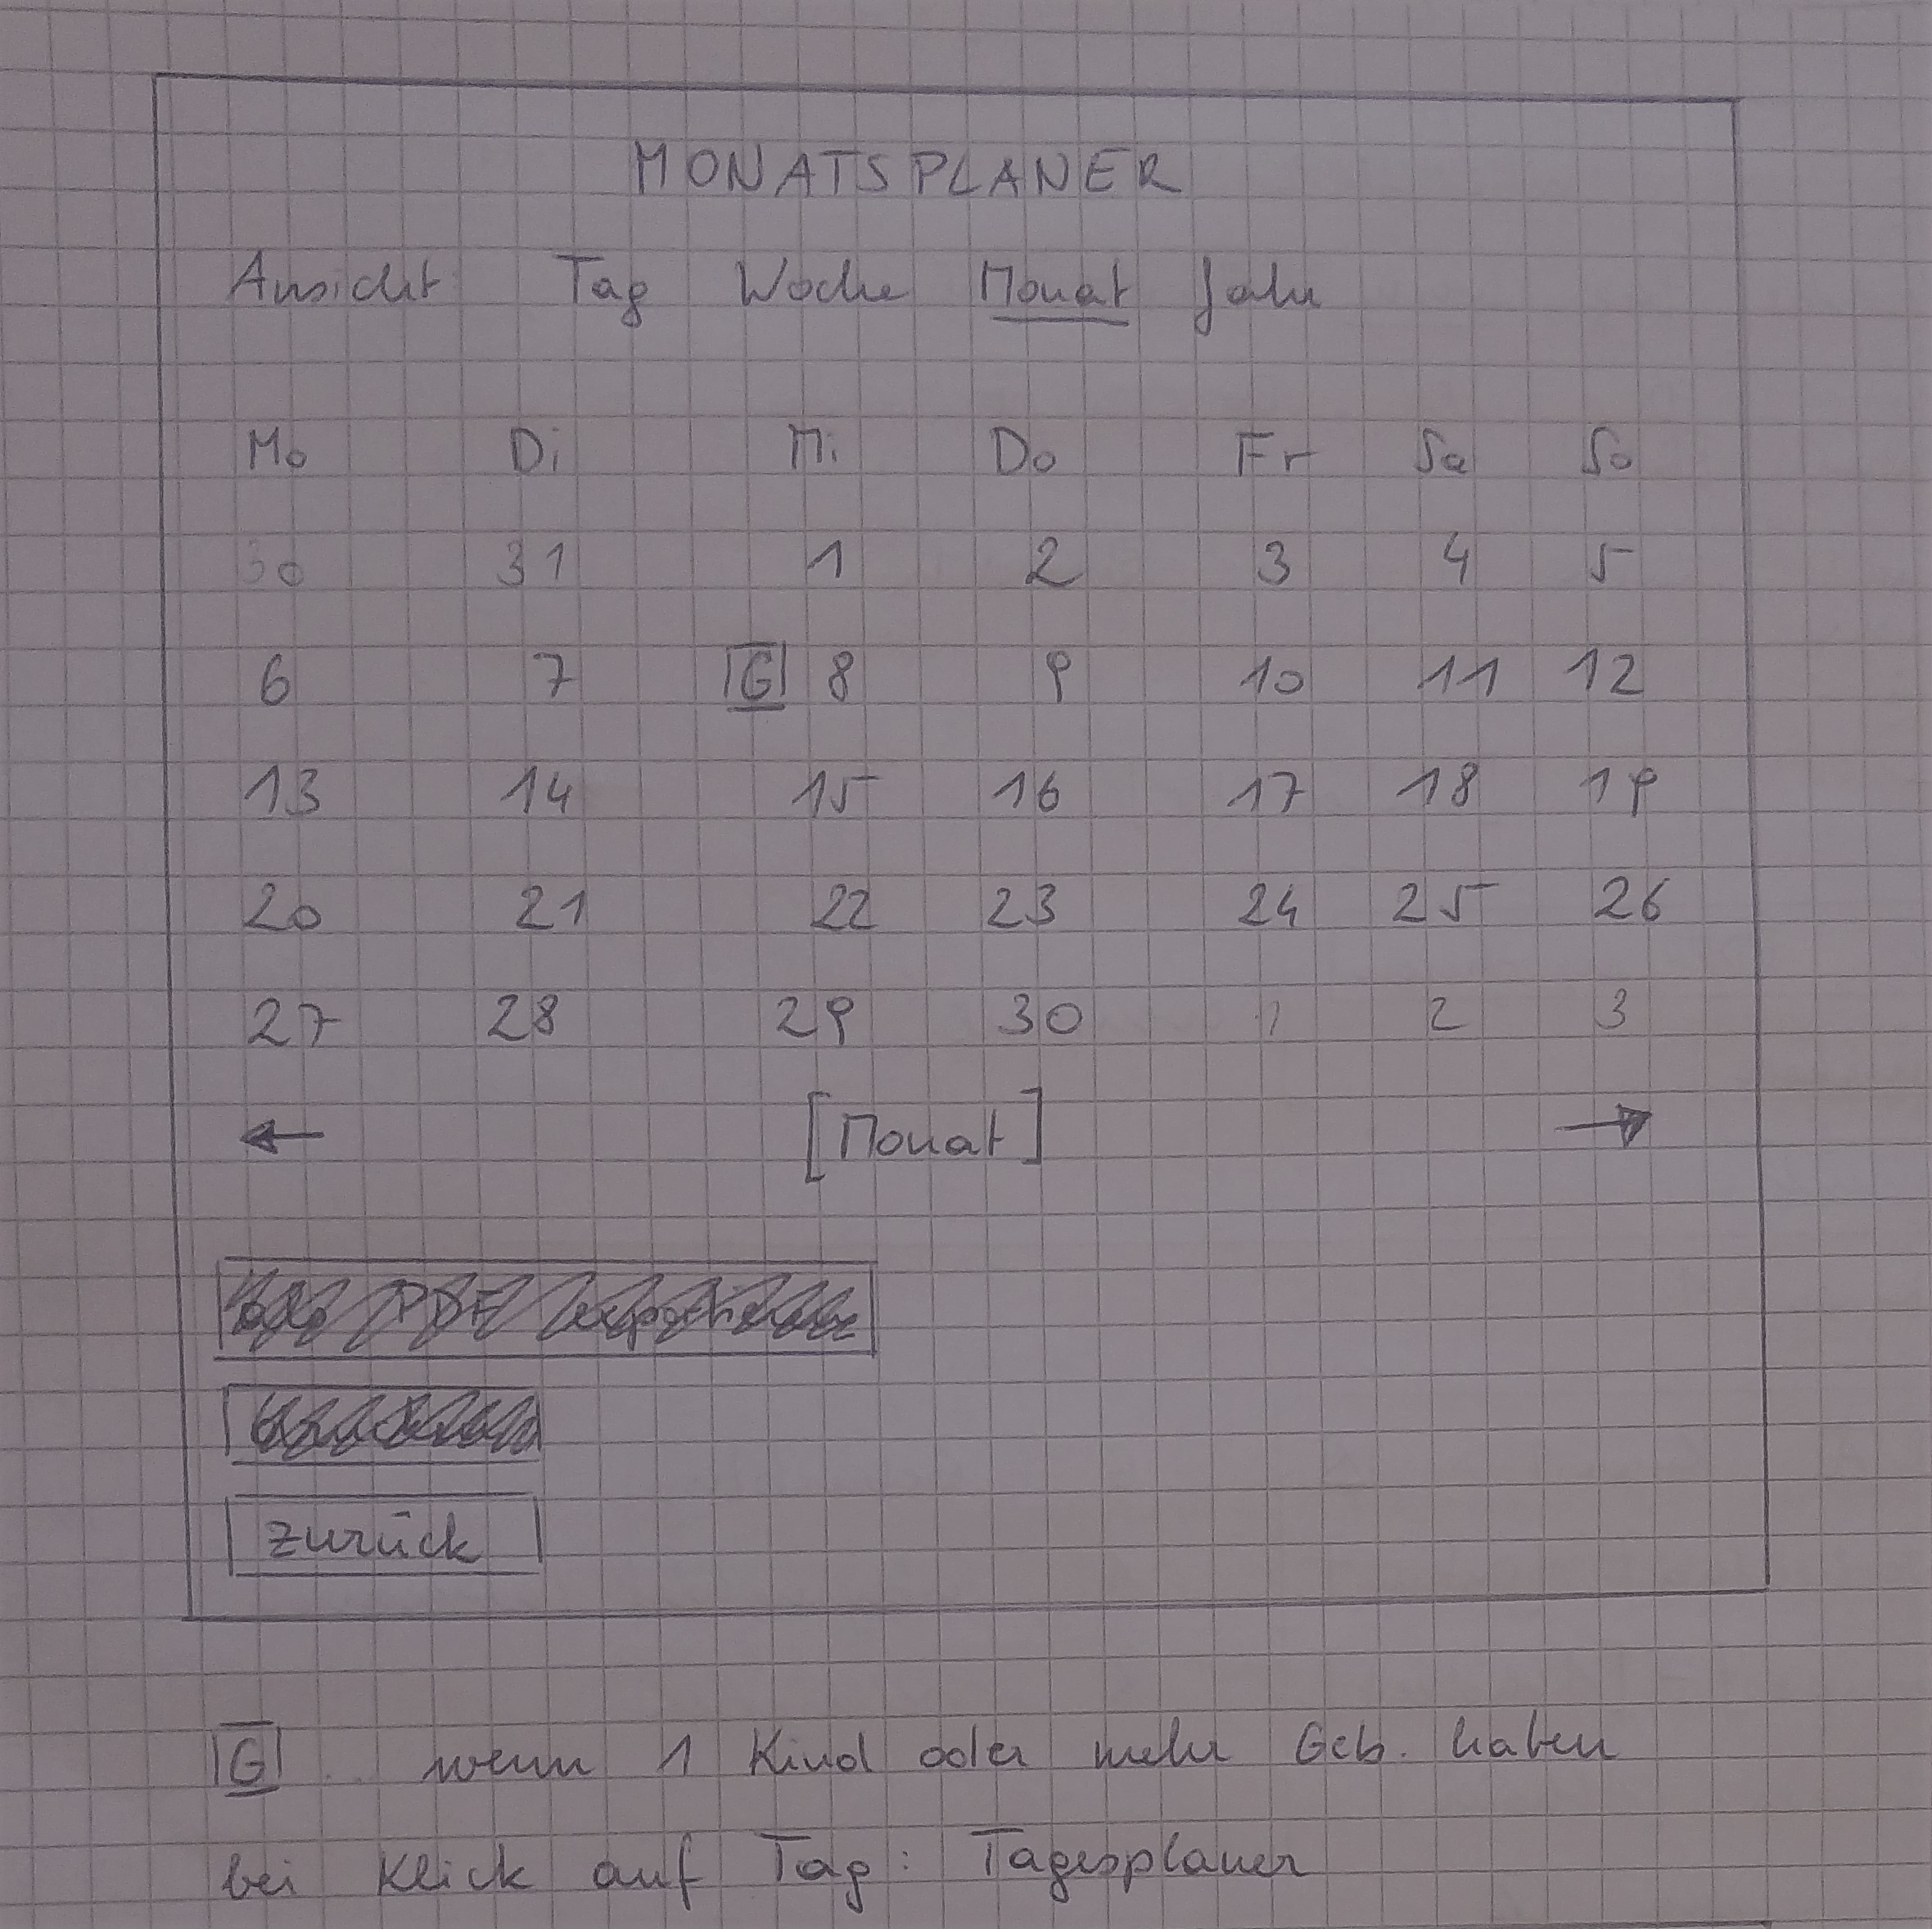 MONATSPLANER
Ansicht Tag Woche Monat Jahr
Mo Di Mi Do Fr Sa So
30 31 1 2 3 4 5
6 7 G 8 9 10 11 12
13 14 15 16 17 18 19
20 21 22 23 24 25 26
27 28 29 30 1 2 3
← [Monat] →
PDF
zurück
G .. wenn 1 Kind oder mehr Geb. haben
bei Klick auf Tag: Tagesplaner